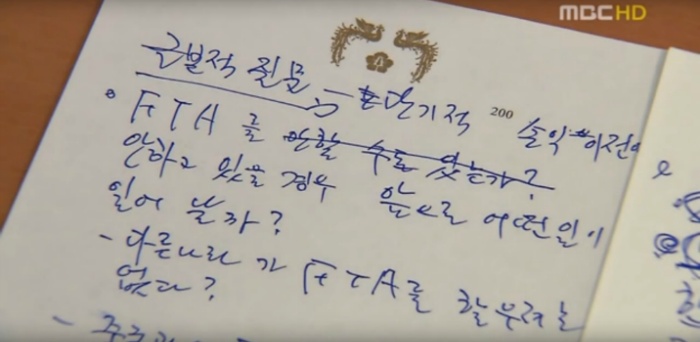 MBC HD
근본적 질문 → 단기적 손익 이전에
200
。FTA를 안할 수도 있는가?
안하고 있을 경우 앞으로 어떤일이
일어 날까?
- 다른나라가 FTA를 할 우려는
없다?